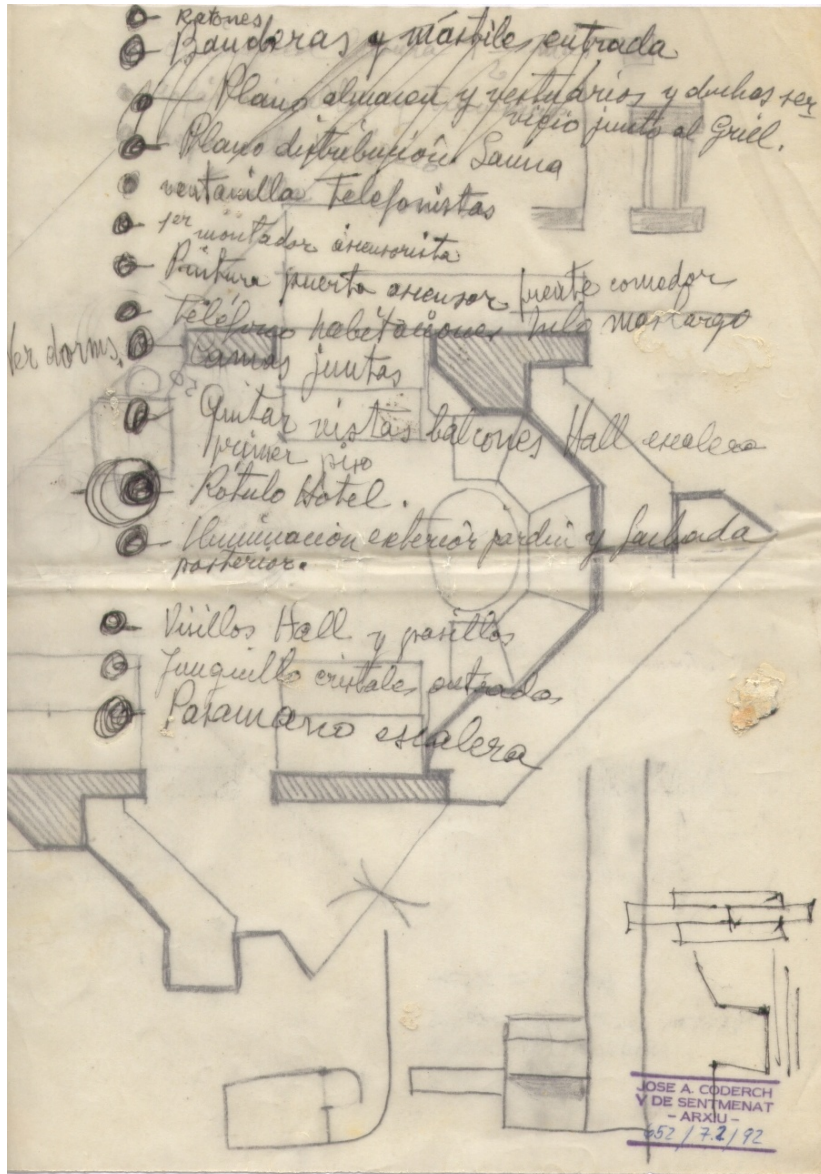 Ratones
Banderas y mástiles entrada
Plano almacen y vestuarios y duchas ser-
vicio junto al Grill.
Plano distribución Sauna
ventanilla Telefonistas
1er montador ascensorista
Pintura puerta ascensor frente comedor
Teléfono habitaciones hilo mas largo
Ver dorms.
camas juntas
Quitar vistas balcones Hall escalera
primer piso
Rótulo Hotel.
Iluminación exterior jardin y fachada
posterior.
Visillos Hall y pasillos
Junquillo cristales entrada
Pasamano escalera
JOSE A. CODERCH
Y DE SENTMENAT
- ARXIU -
652 / 7.2 / 92